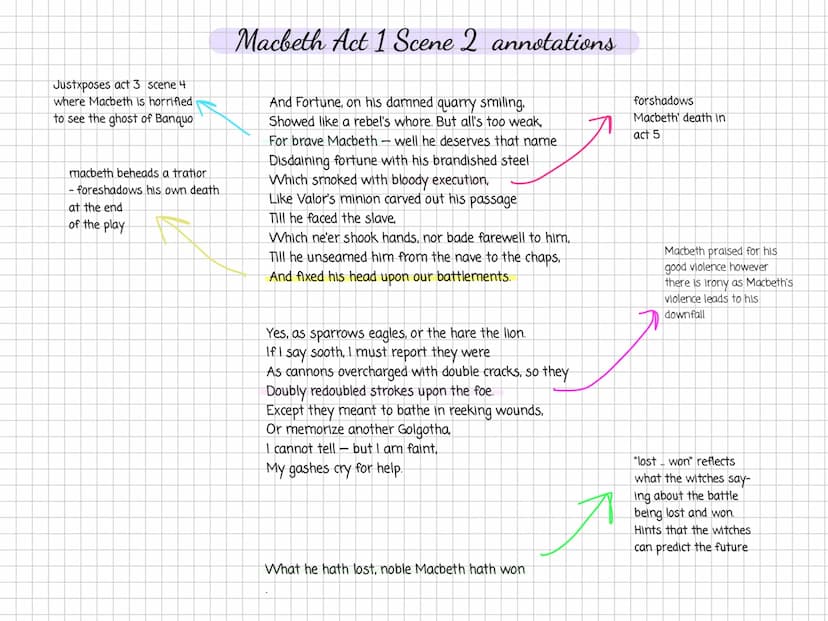 Macbeth Act 1 Scene 2 annotations
Justxposes act 3 scene 4
where Macbeth is horrified
to see the ghost of Banquo
macbeth beheads a tratior
- foreshadows his own death
at the end
of the play
And Fortune, on his damned quarry smiling,
Showed like a rebel's whore. But all's too weak,
For brave Macbeth — well he deserves that name
Disdaining fortune with his brandished steel
Which smoked with bloody execution,
Like Valor's minion carved out his passage
Till he faced the slave,
Which ne'er shook hands, nor bade farewell to him,
Till he unseamed him from the nave to the chaps,
And fixed his head upon our battlements.
forshadows
Macbeth' death in
act 5
Macbeth praised for his
good violence however
there is irony as Macbeth's
violence leads to his
downfall
Yes, as sparrows eagles, or the hare the lion.
If I say sooth, I must report they were
As cannons overcharged with double cracks, so they
Doubly redoubled strokes upon the foe.
Except they meant to bathe in reeking wounds,
Or memorize another Golgotha,
I cannot tell — but I am faint,
My gashes cry for help.
"lost ... won" reflects
what the witches say-
ing about the battle
being lost and won.
Hints that the witches
can predict the future
What he hath lost, noble Macbeth hath won
.